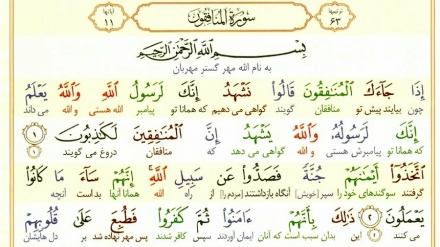 ترتیبها ۶۳ سورة المنافقون آیاتها ۱۱
بِسْمِ اللَّهِ الرَّحْمَٰنِ الرَّحِيمِ
به نام الله مهر گستر مهربان
إِذَا جَاءَكَ الْمُنَافِقُونَ قَالُوا نَشْهَدُ إِنَّكَ لَرَسُولُ اللَّهِ وَاللَّهُ يَعْلَمُ
چون بیایند پیش تو منافقان گویند گواهی می دهیم که همانا تو پیامبر الله هستی و الله می داند
إِنَّكَ لَرَسُولُهُ وَاللَّهُ يَشْهَدُ إِنَّ الْمُنَافِقِينَ لَكَاذِبُونَ ۱
که همانا تو پیامبرش هستی و الله گواهی می دهد که منافقان دروغ می گویند ۱
اتَّخَذُوا أَيْمَانَهُمْ جُنَّةً فَصَدُّوا عَن سَبِيلِ اللَّهِ إِنَّهُمْ سَاءَ مَا كَانُوا
گرفتند سوگندهای خود را سپر (خویش) آنگاه بازداشتند (مردم را) از راه الله همانا آنها بد است آنچه
يَعْمَلُونَ ۲ ذَٰلِكَ بِأَنَّهُمْ آمَنُوا ثُمَّ كَفَرُوا فَطُبِعَ عَلَىٰ قُلُوبِهِمْ
می کنند این بدان سبب است که آنان ایمان آوردند سپس کافر شدند پس مهر نهاده شد بر دل هایشان